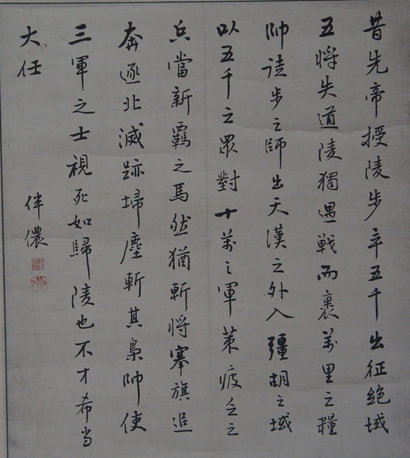 昔先帝授陵步卒五千出征絕域
五將失道陵獨遇戰而裹萬里之糧
帥徒步之師出天漢之外入彊胡之域
以五千之眾對十萬之軍策疲乏之
兵當新羈之馬然猶斬將搴旗追
奔逐北滅跡埽塵斬其梟帥使
三軍之士視死如歸陵也不才希当
大任
伴儂